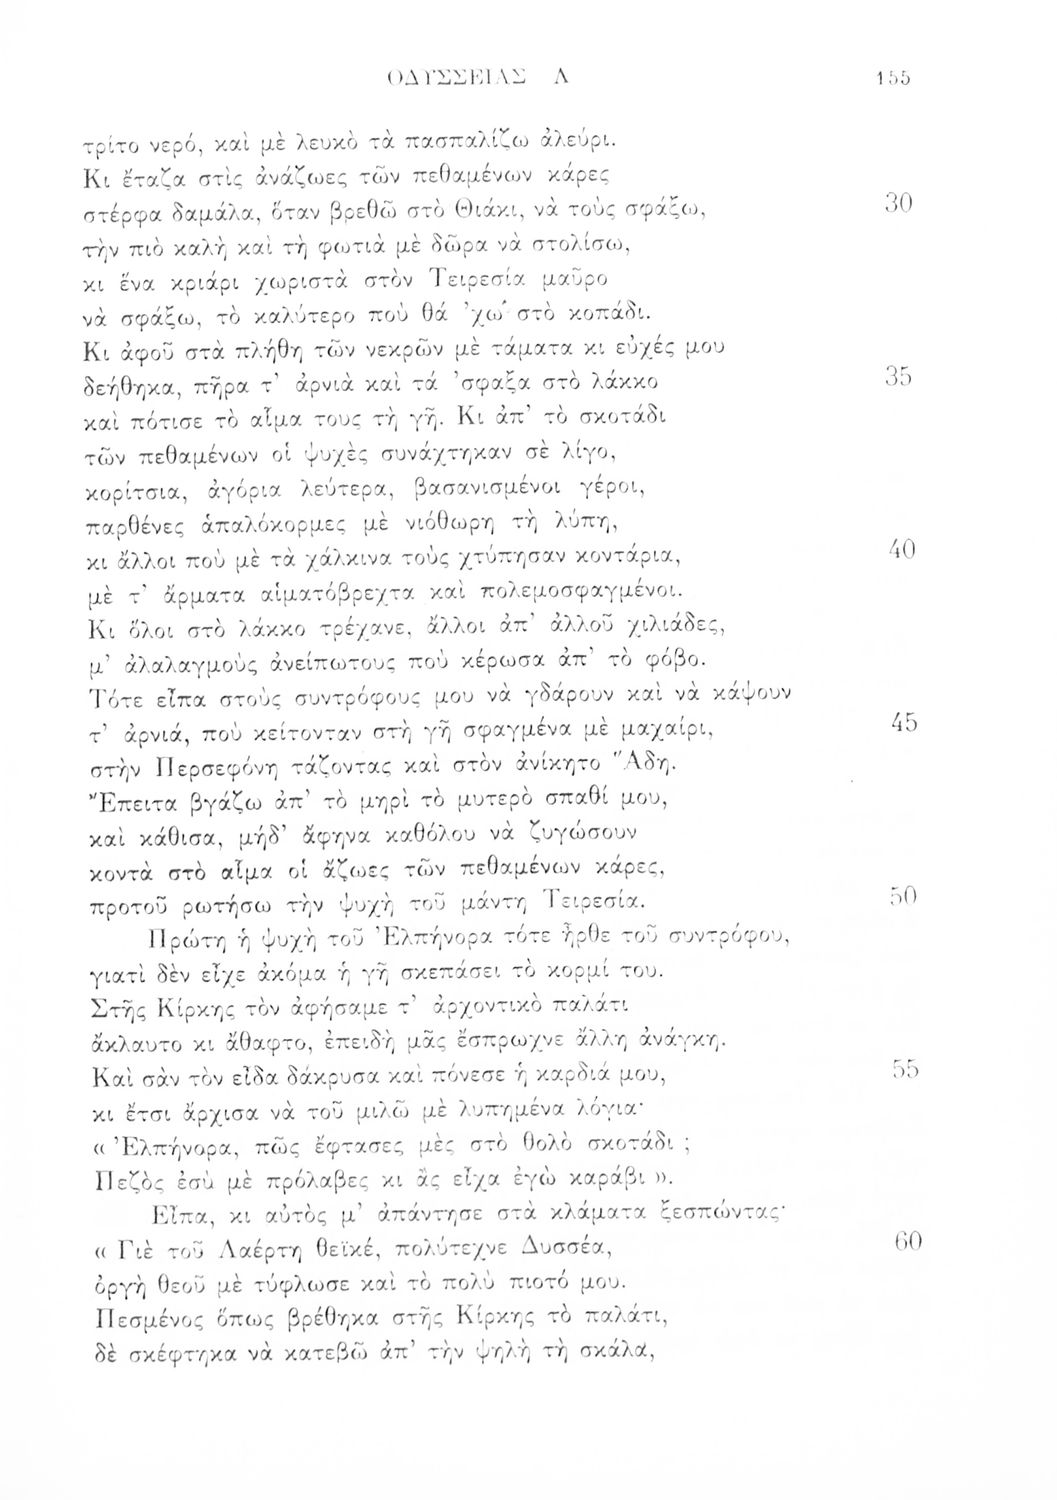 ΟΔΥΣΣΕΙΑΣ Λ 155
τρίτο νερό, καὶ μὲ λευκὸ τὰ πασπαλίζω ἀλεύρι.
Κι ἔταζα στὶς ἀνάζωες τῶν πεθαμένων κάρες
στέρφα δαμάλα, ὅταν βρεθῶ στὸ Θιάκι, νὰ τοὺς σφάξω, 30
τὴν πιὸ καλὴ καὶ τὴ φωτιὰ μὲ δῶρα νὰ στολίσω,
κι ἕνα κριάρι χωριστὰ στὸν Τειρεσία μαῦρο
νὰ σφάξω, τὸ καλύτερο ποὺ θά ᾿χω στὸ κοπάδι.
Κι ἀφοῦ στὰ πλήθη τῶν νεκρῶν μὲ τάματα κι εὐχές μου
δεήθηκα, πῆρα τ᾿ ἀρνιὰ καὶ τά ᾿σφαξα στὸ λάκκο 35
καὶ πότισε τὸ αἷμα τους τὴ γῆ. Κι ἀπ᾿ τὸ σκοτάδι
τῶν πεθαμένων οἱ ψυχὲς συνάχτηκαν σὲ λίγο,
κορίτσια, ἀγόρια λεύτερα, βασανισμένοι γέροι,
παρθένες ἁπαλόκορμες μὲ νιόθωρη τὴ λύπη,
κι ἄλλοι ποὺ μὲ τὰ χάλκινα τοὺς χτύπησαν κοντάρια, 40
μὲ τ᾿ ἄρματα αἱματόβρεχτα καὶ πολεμοσφαγμένοι.
Κι ὅλοι στὸ λάκκο τρέχανε, ἄλλοι ἀπ᾿ ἀλλοῦ χιλιάδες,
μ᾿ ἀλαλαγμοὺς ἀνείπωτους ποὺ κέρωσα ἀπ᾿ τὸ φόβο.
Τότε εἶπα στοὺς συντρόφους μου νὰ γδάρουν καὶ νὰ κάψουν
τ᾿ ἀρνιά, ποὺ κείτονταν στὴ γῆ σφαγμένα μὲ μαχαίρι, 45
στὴν Περσεφόνη τάζοντας καὶ στὸν ἀνίκητο Ἅδη.
Ἔπειτα βγάζω ἀπ᾿ τὸ μηρὶ τὸ μυτερὸ σπαθί μου,
καὶ κάθισα, μήδ᾿ ἄφηνα καθόλου νὰ ζυγώσουν
κοντὰ στὸ αἷμα οἱ ἄζωες τῶν πεθαμένων κάρες,
προτοῦ ρωτήσω τὴν ψυχὴ τοῦ μάντη Τειρεσία. 50
Πρώτη ἡ ψυχὴ τοῦ Ἐλπήνορα τότε ἦρθε τοῦ συντρόφου,
γιατὶ δὲν εἶχε ἀκόμα ἡ γῆ σκεπάσει τὸ κορμί του.
Στῆς Κίρκης τὸν ἀφήσαμε τ᾿ ἀρχοντικὸ παλάτι
ἄκλαυτο κι ἄθαφτο, ἐπειδὴ μᾶς ἔσπρωχνε ἄλλη ἀνάγκη.
Καὶ σὰν τὸν εἶδα δάκρυσα καὶ πόνεσε ἡ καρδιά μου, 55
κι ἔτσι ἄρχισα νὰ τοῦ μιλῶ μὲ λυπημένα λόγια·
« Ἐλπήνορα, πῶς ἔφτασες μὲς στὸ θολὸ σκοτάδι ;
Πεζὸς ἐσὺ μὲ πρόλαβες κι ἂς εἶχα ἐγὼ καράβι ».
Εἶπα, κι αὐτὸς μ᾿ ἀπάντησε στὰ κλάματα ξεσπώντας·
« Γιὲ τοῦ Λαέρτη θεϊκέ, πολύτεχνε Δυσσέα, 60
ὀργὴ θεοῦ μὲ τύφλωσε καὶ τὸ πολὺ πιοτό μου.
Πεσμένος ὅπως βρέθηκα στῆς Κίρκης τὸ παλάτι,
δὲ σκέφτηκα νὰ κατεβῶ ἀπ᾿ τὴν ψηλὴ τὴ σκάλα,